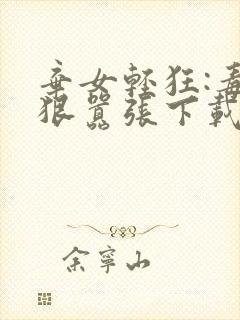 棄女輕狂:毒
狠囂張下載
余寧山